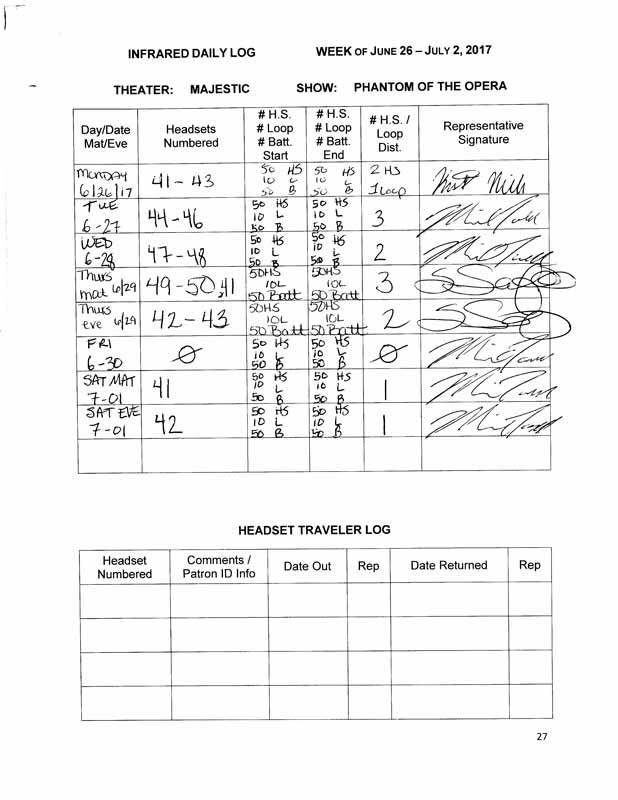 INFRARED DAILY LOG WEEK OF JUNE 26 – JULY 2, 2017
THEATER: MAJESTIC SHOW: PHANTOM OF THE OPERA
Day/Date Mat/Eve Headsets Numbered # H.S. # Loop # Batt. Start # H.S. # Loop # Batt. End # H.S. / Loop Dist. Representative Signature
MONDAY 6/26/17 41 - 43 50 HS 10 L 50 B 50 HS 10 L 50 B 2 HS 1 Loop
TUE 6-27 44-46 50 HS 10 L 50 B 50 HS 10 L 50 B 3
WED 6-28 47-48 50 HS 10 L 50 B 50 HS 10 L 50 B 2
Thurs mat 6/29 49-50,41 50HS 10L 50 Batt 50HS 10L 50 Batt 3
Thurs eve 6/29 42-43 50HS 10L 50 Batt 50HS 10L 50 Batt 2
FRI 6-30 Ø 50 HS 10 L 50 B 50 HS 10 L 50 B Ø
SAT MAT 7-01 41 50 HS 10 L 50 B 50 HS 10 L 50 B 1
SAT EVE 7-01 42 50 HS 10 L 50 B 50 HS 10 L 50 B 1
HEADSET TRAVELER LOG
Headset Numbered Comments / Patron ID Info Date Out Rep Date Returned Rep
27